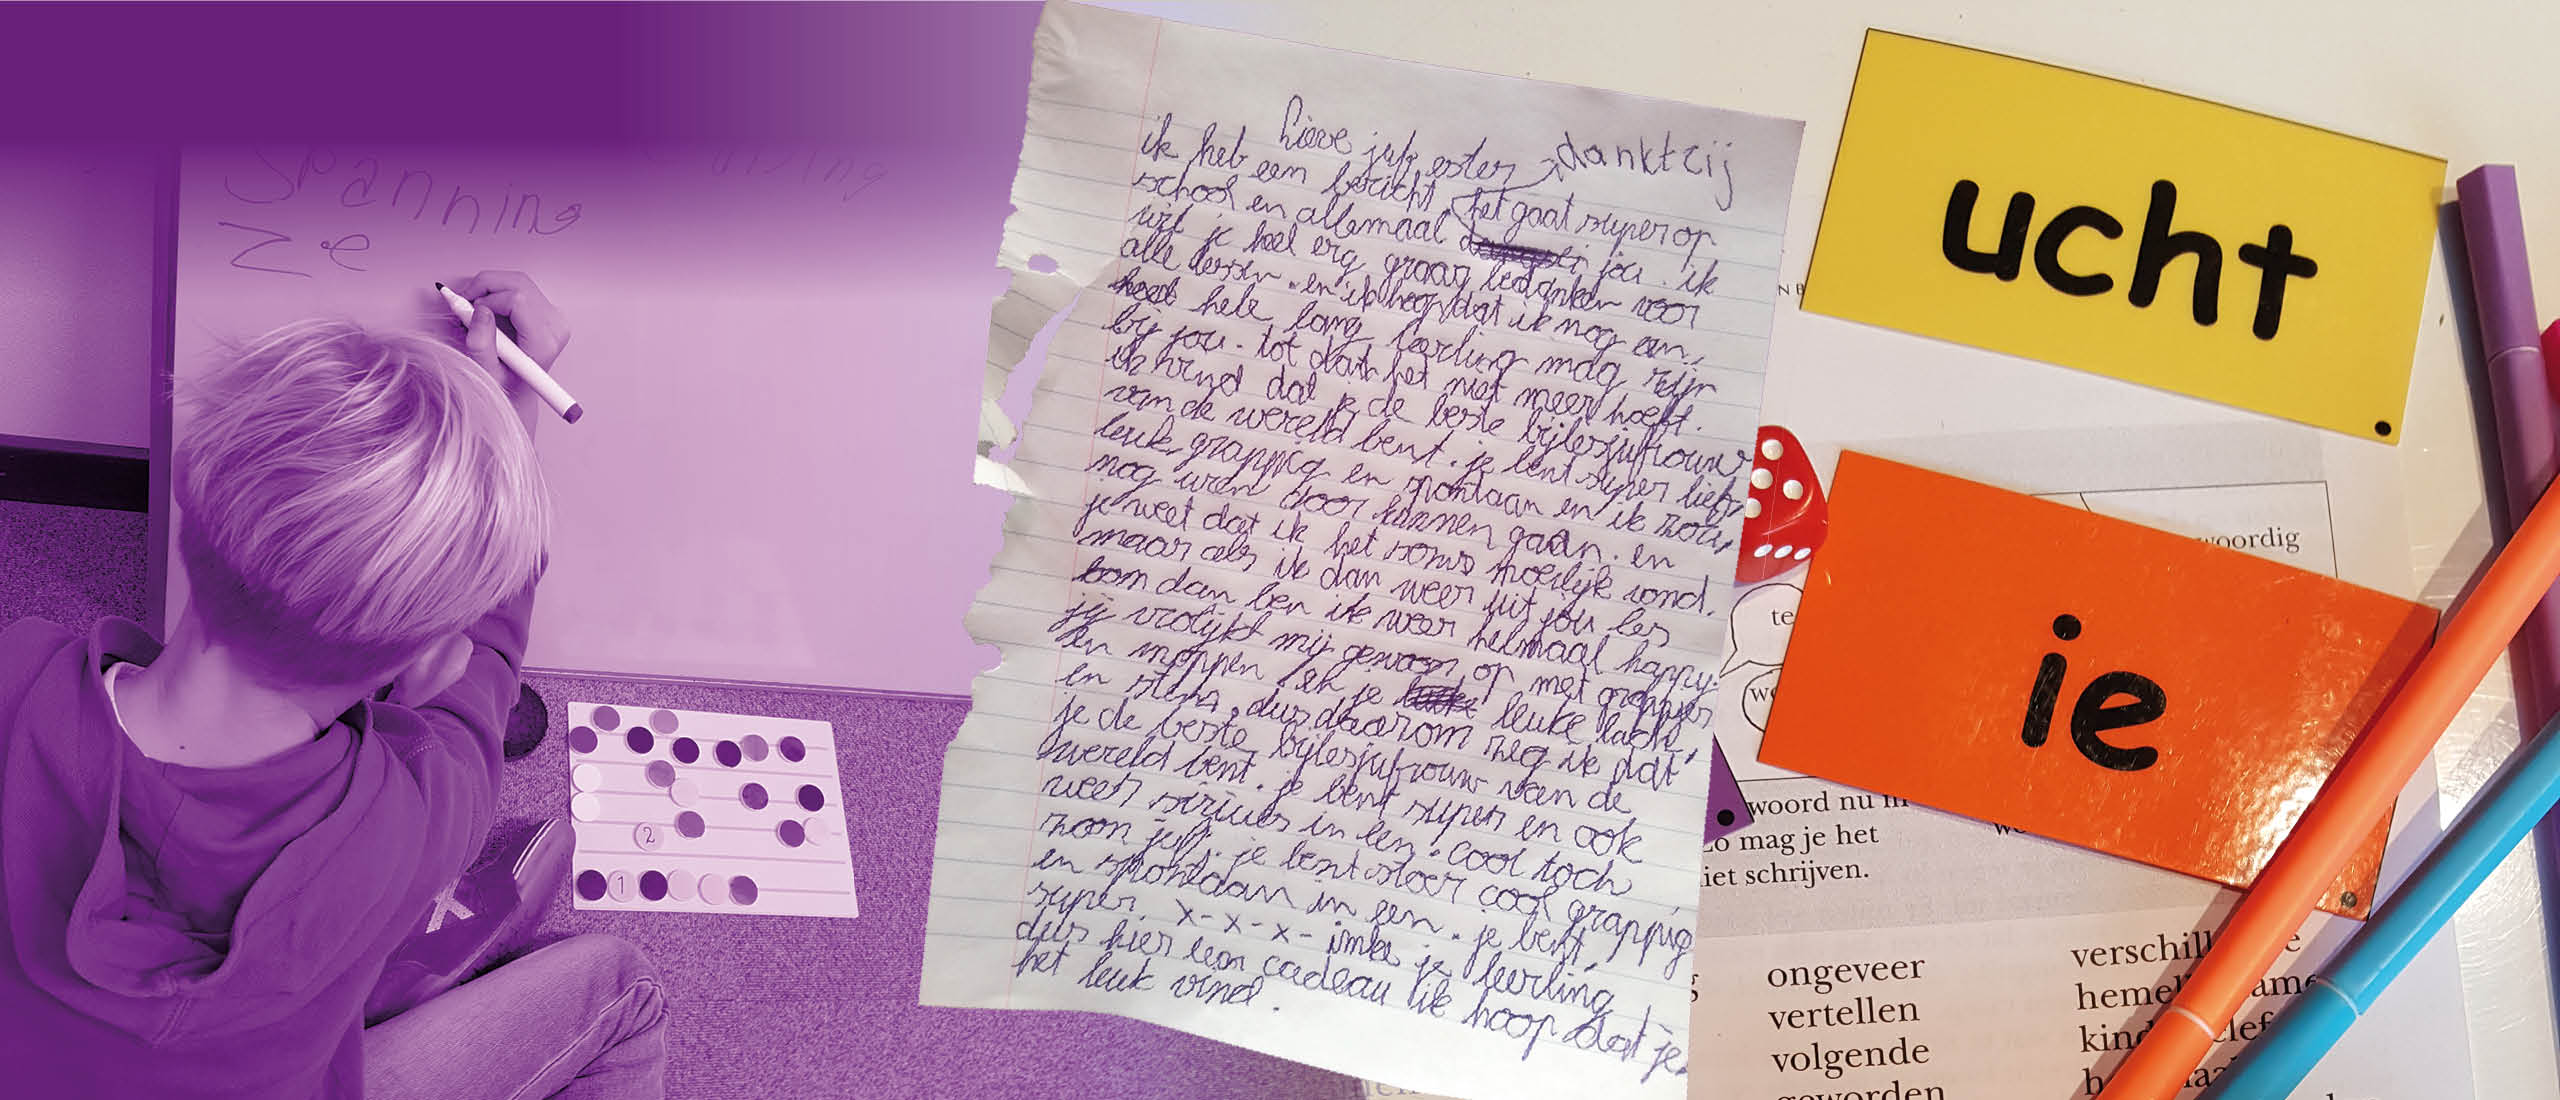 Spanning
Ze
Lieve juf ester
danktzij
ik heb een bericht. het gaat super op
school en allemaal jou. ik
wil je heel erg graag bedanken voor
alle lessen. en ik hoop dat ik nog een
heel hele lang leerling mag zijn
bij jou. tot dat het niet meer hoeft.
ik vind dat je de beste bijlesjufrouw
van de wereld bent. je bent super lief,
leuk, grappig en spontaan en ik zou
nog uren door kunnen gaan. en
je weet dat ik het soms moeilijk vond.
maar als ik dan weer uit jou les
kom dan ben ik weer helmaal happy.
jij vrolijkt mij gewoon op met grapjes
en moppen en je leuke lach
en stem, dus daarom zeg ik dat
je de beste bijlesjufrouw van de
wereld bent. je bent super en ook
weer sirius in een. cool toch
zoon juf. je bent stoer cool grappig
en spontaan in een. je bent
super. x-x-x- imke je leerling
dus hier een cadeau ik hoop dat je
het leuk vind.
ucht
ie
2
1
woordig
te
woord nu in
zo mag je het
niet schrijven.
ongeveer
vertellen
volgende
geworden
verschill
hemel